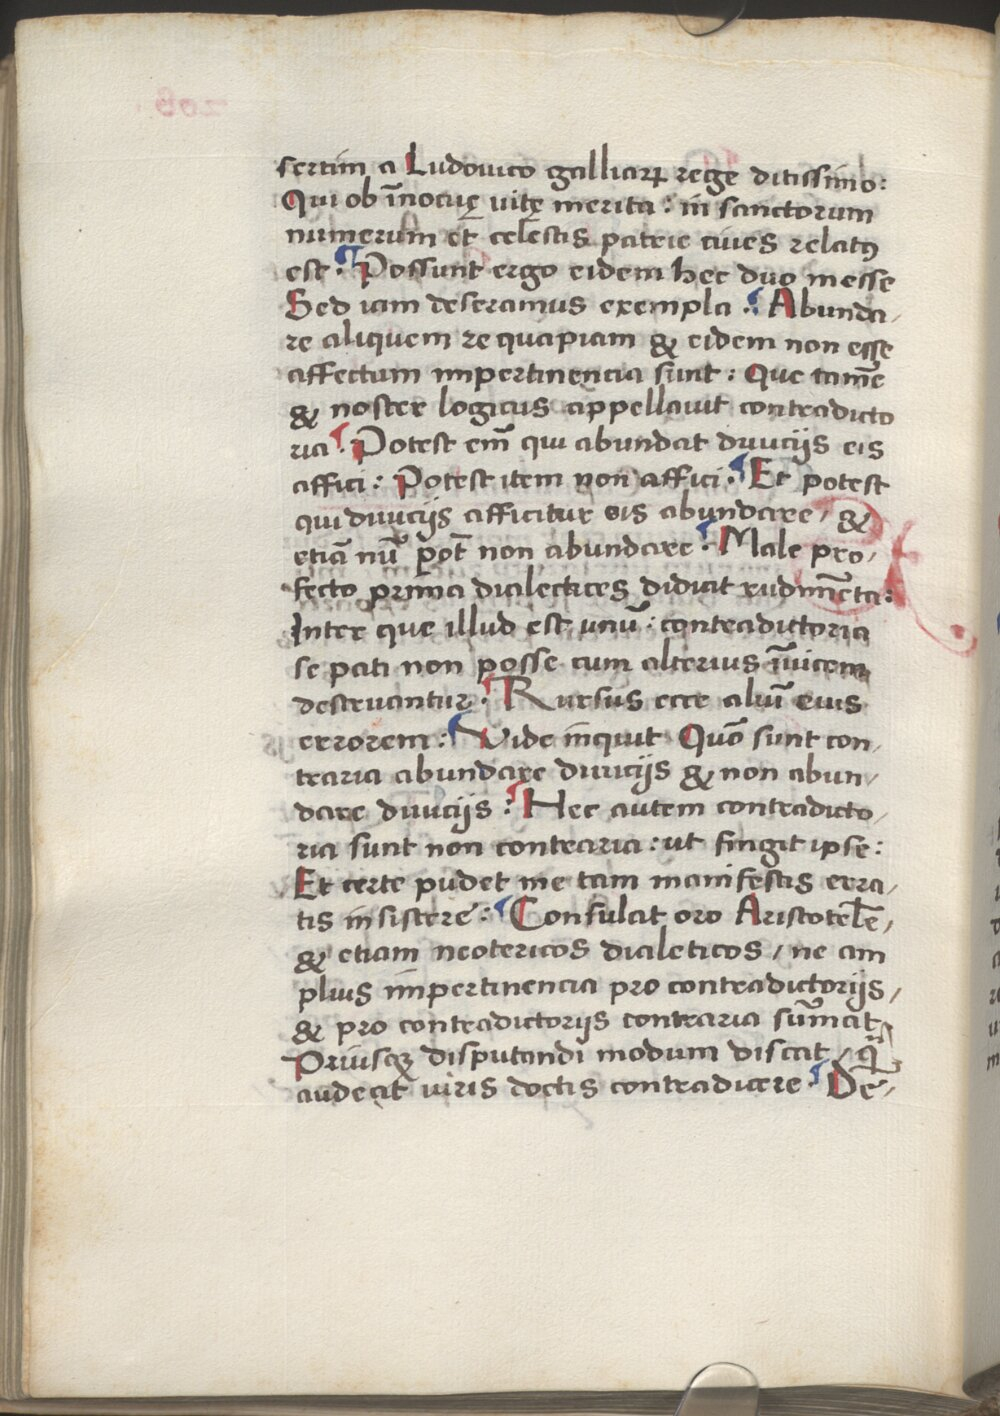 sertim a Ludouico galliaꝝ rege ditissimo:
Qui ob īnocuę uitę merita: in sanctorum
numerum et celestis patrie ciues relatꝰ
est. Possunt ergo eidem hec duo inesse
Sed iam deseramus exempla. Abunda,
re aliquem re quapiam & eidem non esse
affectum impertinencia sunt: Que tamē
& noster logicus appellauit contradicto
ria Potest em̄ qui abundat diuicijs eis
affici: Potest item non affici. Et potest
qui diuicijs afficitur eis abundare, &
etiā nū pōt non abundare. Male pro,
fecto prima dialectices didicit rudimēta:
Inter que illud est unū: contradictoria
se pati non posse cum alterius īuicem
destruantur. Rursus ecce aliū eius
errorem: Vide inquit Quō sunt con,
traria abundare diuicijs & non abun,
dare diuicijs: Hec autem contradicto,
ria sunt non contraria: ut fingit ipse:
Et certe pudet me tam manifestis erra,
tis insistere: Consulat oro Aristotelē,
& etiam neotericos dialeticos, ne am
plius impertinencia pro contradictorijs,
& pro contradictorijs contraria sum̄at,
Priusqꝫ disputandi modum discat, q̄
audeat uiris doctis contradicere. De,